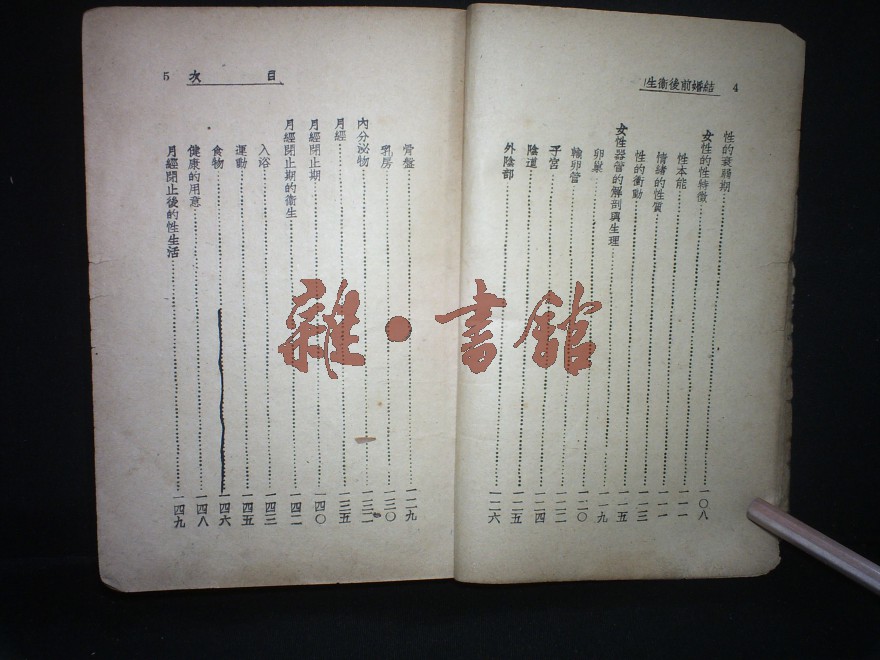 4 結婚前後衛生
性的衰弱期……一〇八
女性的性特徵……一一一
性本能……一一一
情緒的性質……一一三
性的衝動……一一五
女性器官的解剖與生理……一一九
卵巢……一二〇
輸卵管……一二二
子宮……一二四
陰道……一二五
外陰部……一二六
目次 5
骨盤……一二九
乳房……一三〇
內分泌物……一三二
月經……一三五
月經閉止期……一四〇
月經閉止期的衛生……一四二
入浴……一四三
運動……一四五
食物……一四六
健康的用意……一四八
月經閉止後的性生活……一四九
雜·書館